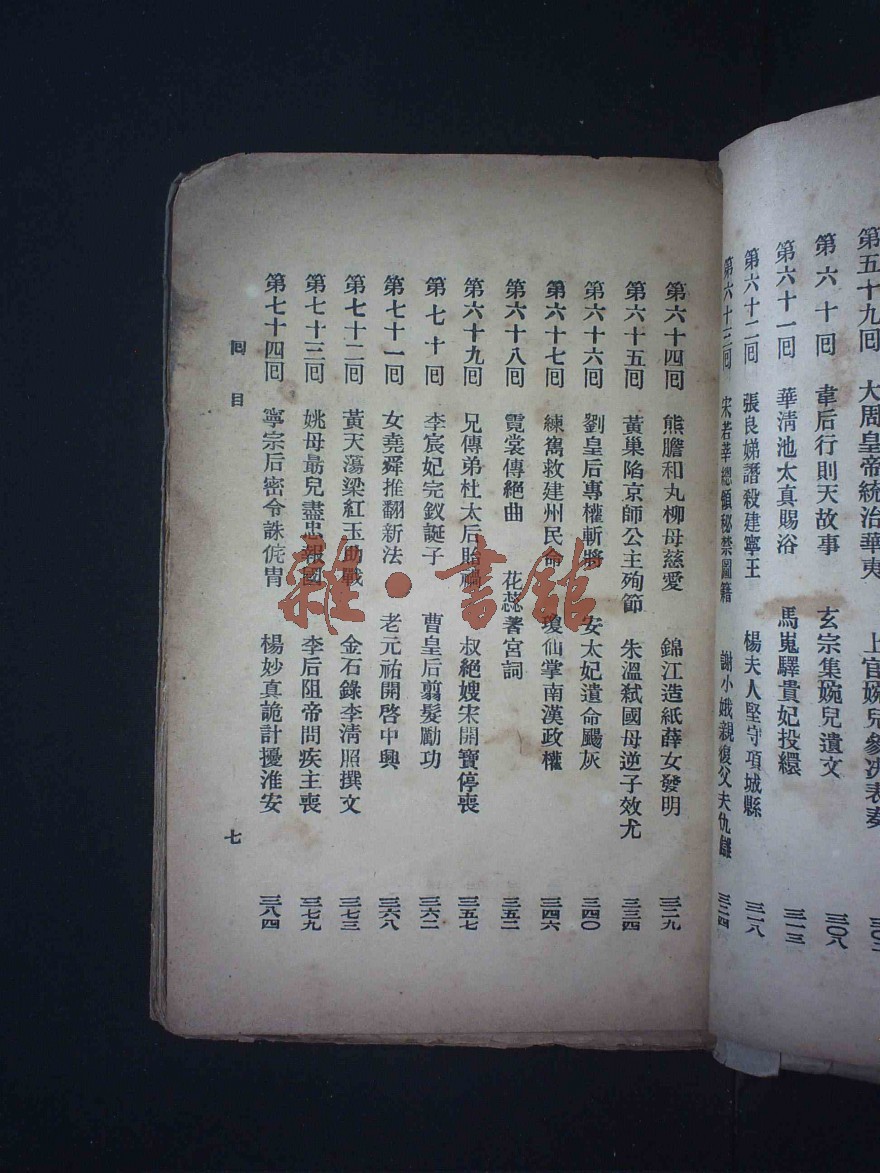 第五十九囘 大周皇帝統治華夷 上官婉兒參決表奏
第六十囘 韋后行則天故事 玄宗集婉兒遺文 三〇八
第六十一囘 華清池太真賜浴 馬嵬驛貴妃投繯 三一三
第六十二囘 張良娣譖殺建寧王 楊夫人堅守項城縣 三一八
第六十三囘 宋若莘總領秘禁圖籍 謝小娥親復父夫仇讎 三二四
第六十四囘 熊膽和丸柳母慈愛 錦江造紙薛女發明 三二九
第六十五囘 黃巢陷京師公主殉節 朱溫弒國母逆子效尤 三三四
第六十六囘 劉皇后專權斬將 安太妃遺命颺灰 三四〇
第六十七囘 練寯救建州民命 瓊仙掌南漢政權 三四六
第六十八囘 霓裳傳絕曲 花蕊著宮詞 三五二
第六十九囘 兄傳弟杜太后貽禍 叔絕嫂宋開寶停喪 三五七
第七十囘 李宸妃完釵誕子 曹皇后翦髮勵功 三六二
第七十一囘 女堯舜推翻新法 老元祐開啓中興 三六八
第七十二囘 黃天蕩梁紅玉助戰 金石錄李清照撰文 三七三
第七十三囘 姚母勗兒盡忠報國 李后阻帝問疾主喪 三七九
第七十四囘 寧宗后密令誅侂冑 楊妙真詭計擾淮安 三八四
囘目
七
雜·書館